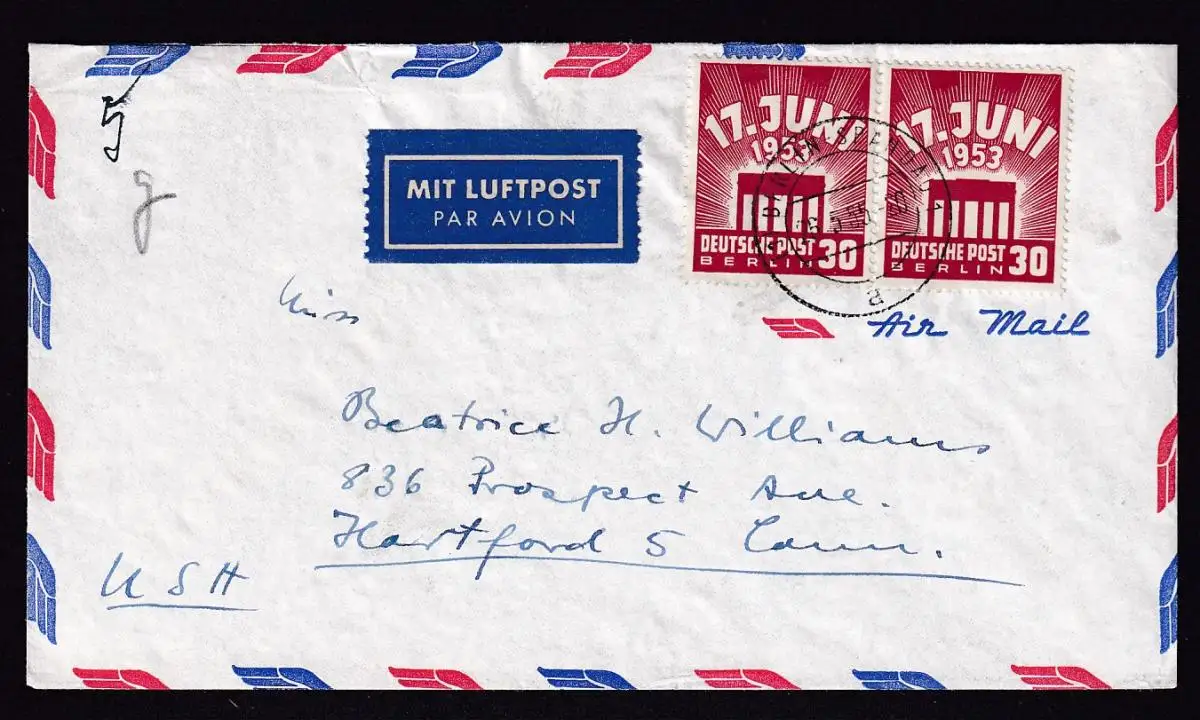 5
g
MIT LUFTPOST
PAR AVION
17. JUNI
1953
DEUTSCHE POST
BERLIN 30
17. JUNI
1953
DEUTSCHE POST
BERLIN 30
BERLIN-SPANDAU 1
Air Mail
Miss
Beatrice H. Williams
836 Prospect Ave.
Hartford 5 Conn.
USA